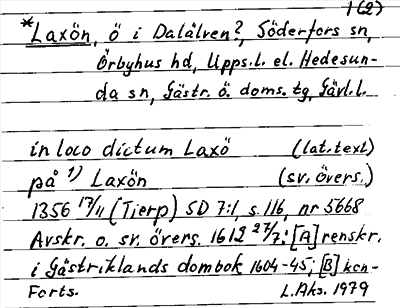 1(2)
*Laxön, ö i Dalälven?, Söderfors sn,
Örbyhus hd, Upps.l. el. Hedesun-
da sn, Gästr. ö. doms. tg, Gävl.l.
in loco dictum Laxö (lat.text)
på 1) Laxön (sv. övers.)
1356 17/11 (Tierp) SD 7:1, s.116, nr 5668
Avskr. o. sv. övers. 1612 27/7: [A] renskr.
i Gästriklands dombok 1604-45; [B] kon-
Forts. L.Aks. 1979